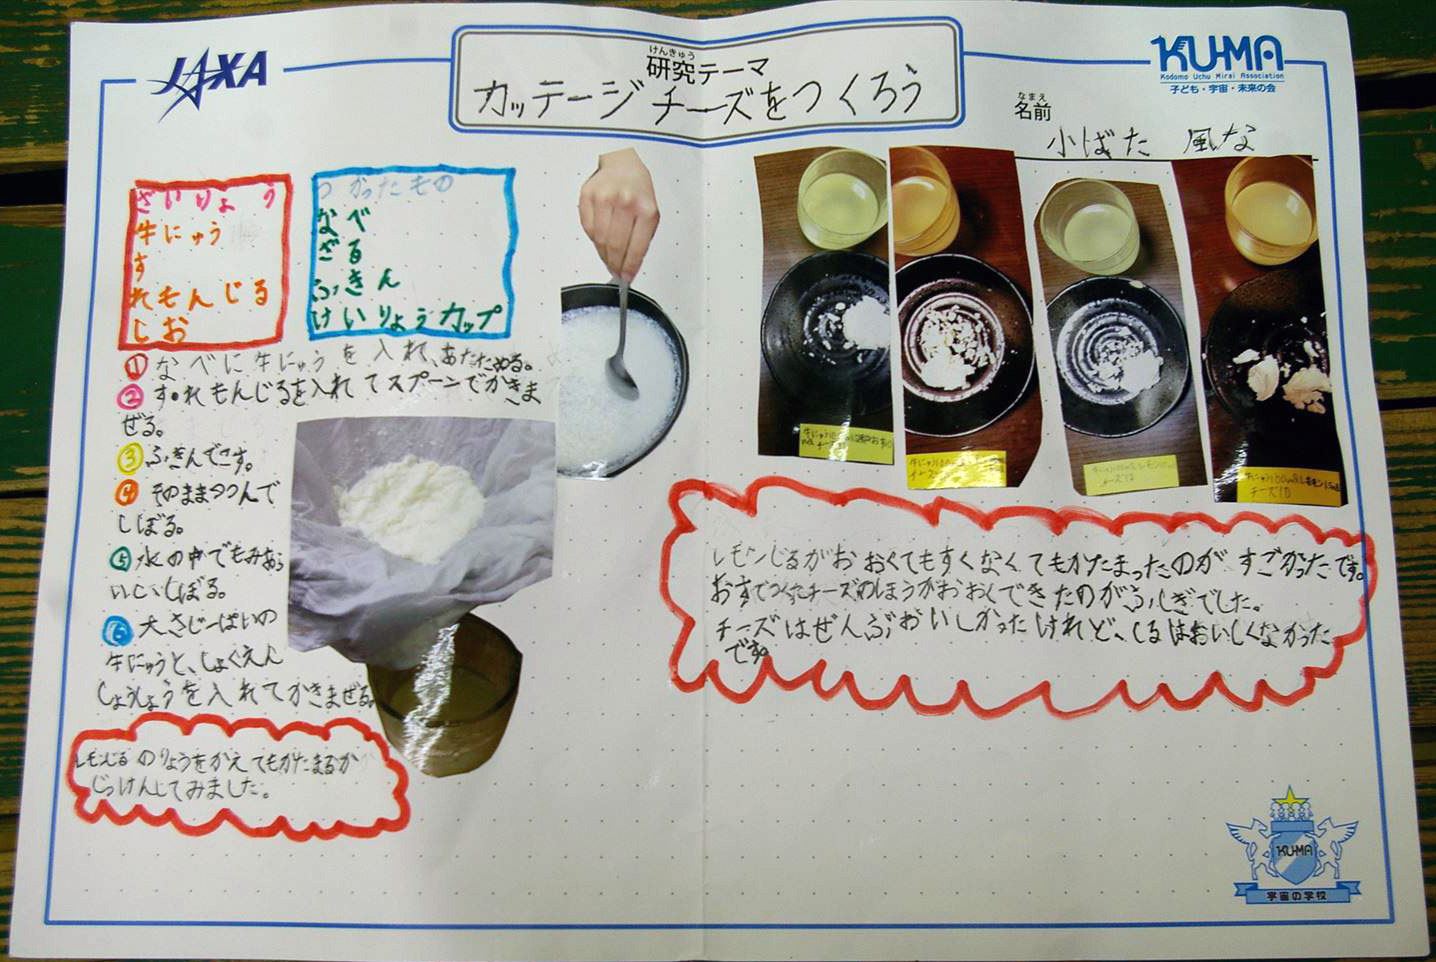 JAXA
けんきゅう
研究テーマ
カッテージチーズをつくろう
KU-MA
Kodomo Uchu Mirai Association
子ども・宇宙・未来の会
なまえ
名前
小ばた 風な
ざいりょう
牛にゅう
す
れもんじる
しお
つかったもの
なべ
ざる
ふきん
けいりょうカップ
① なべに牛にゅうを入れ、あたためる。
② す・れもんじるを入れてスプーンでかきま
ぜる。
③ ふきんでこす。
④ そのままつつんで
しぼる。
⑤ 水の中でもみあら
いし、しぼる。
⑥ 大さじ一ぱいの
牛にゅうと、しょくえん
しょうしょうを入れてかきまぜる。
レモンじるのりょうをかえてもかたまるか
じっけんしてみました。
レモンじるがおおくてもすくなくてもかたまったのがすごかったです。
おすでつくったチーズのほうがおおくできたのがふしぎでした。
チーズはぜんぶおいしかったけれど、しるはおいしくなかった
です。
KU-MA
宇宙の学校